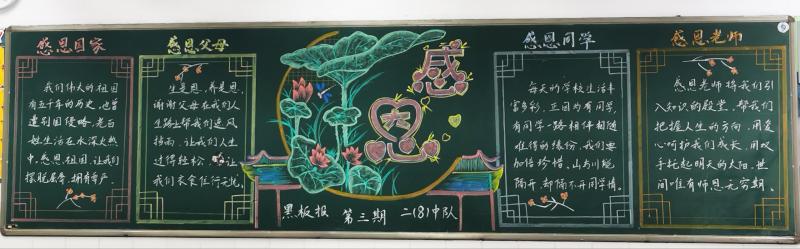 感恩国家
我们伟大的祖国
有五千年的历史,也曾
遭到国侵略,老百
姓生活在水深火热
中,感恩祖国,让我们
摆脱屈辱,拥有尊严.
感恩父母
生是恩,养是恩,
谢谢父母在我们人
生路上帮我们遮风
挡雨,让我们人生
过得轻松,让
我们衣食住行无忧.
感
恩
黑板报 第三期 二(8)中队
感恩同学
每天的学校生活丰
富多彩,正因为有同学,
有同学一路相伴相随
难得的缘份,我们要
加倍珍惜,山与川能
隔开,却隔不开同学情.
感恩老师
感恩老师将我们引
入知识的殿堂,帮我们
把握人生的方向,用爱
心呵护我们成长,用双
手托起明天的太阳,世
间唯有师恩无穷期.